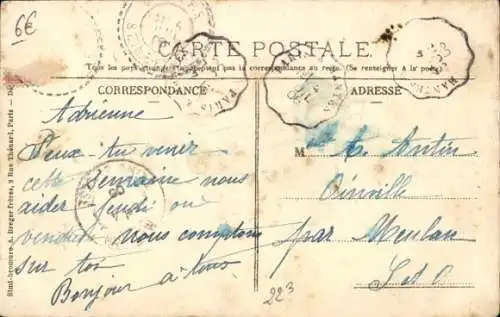 6€
CARTE POSTALE
Tous les pays étrangers n'acceptent pas la correspondance au recto. (Se renseigner à la poste)
CORRESPONDANCE
ADRESSE
Adrienne
Peux-tu venir
cette Semaine nous
aider Jeudi ou
vendredi nous comptons
sur toi
Bonjour à tous
M A. Antin
Oinville
par Meulan
S et O
223
Simi-bromure A. Breger frères, 9 Rue Thénard, Paris